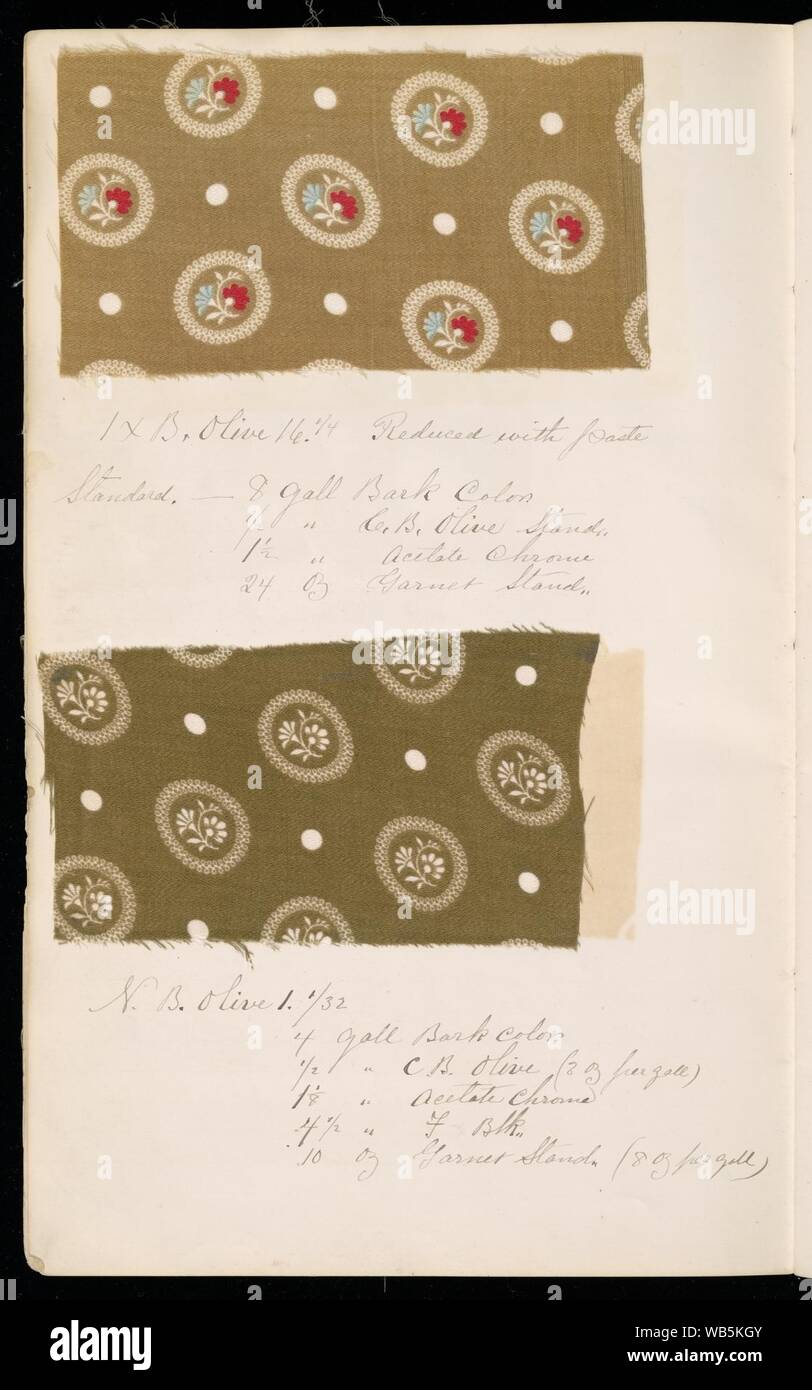 1 X B. Olive 16. 1/4 Reduced with paste
Standard. — 8 Gall Bark Color
" C. B. Olive Stand.,
1 1/2 " Acetate Chrome
24 oz Garnet Stand.,
N. B. Olive 1. 1/32
4 gall Bark color
1/2 " C. B. Olive (8 oz per gall)
1 1/8 " Acetate Chrome
4 1/2 " F Blk.,
10 oz Garnet Stand. (8 oz per gall)
alamy
alamy
alamy
Image ID: WB5KGY
www.alamy.com